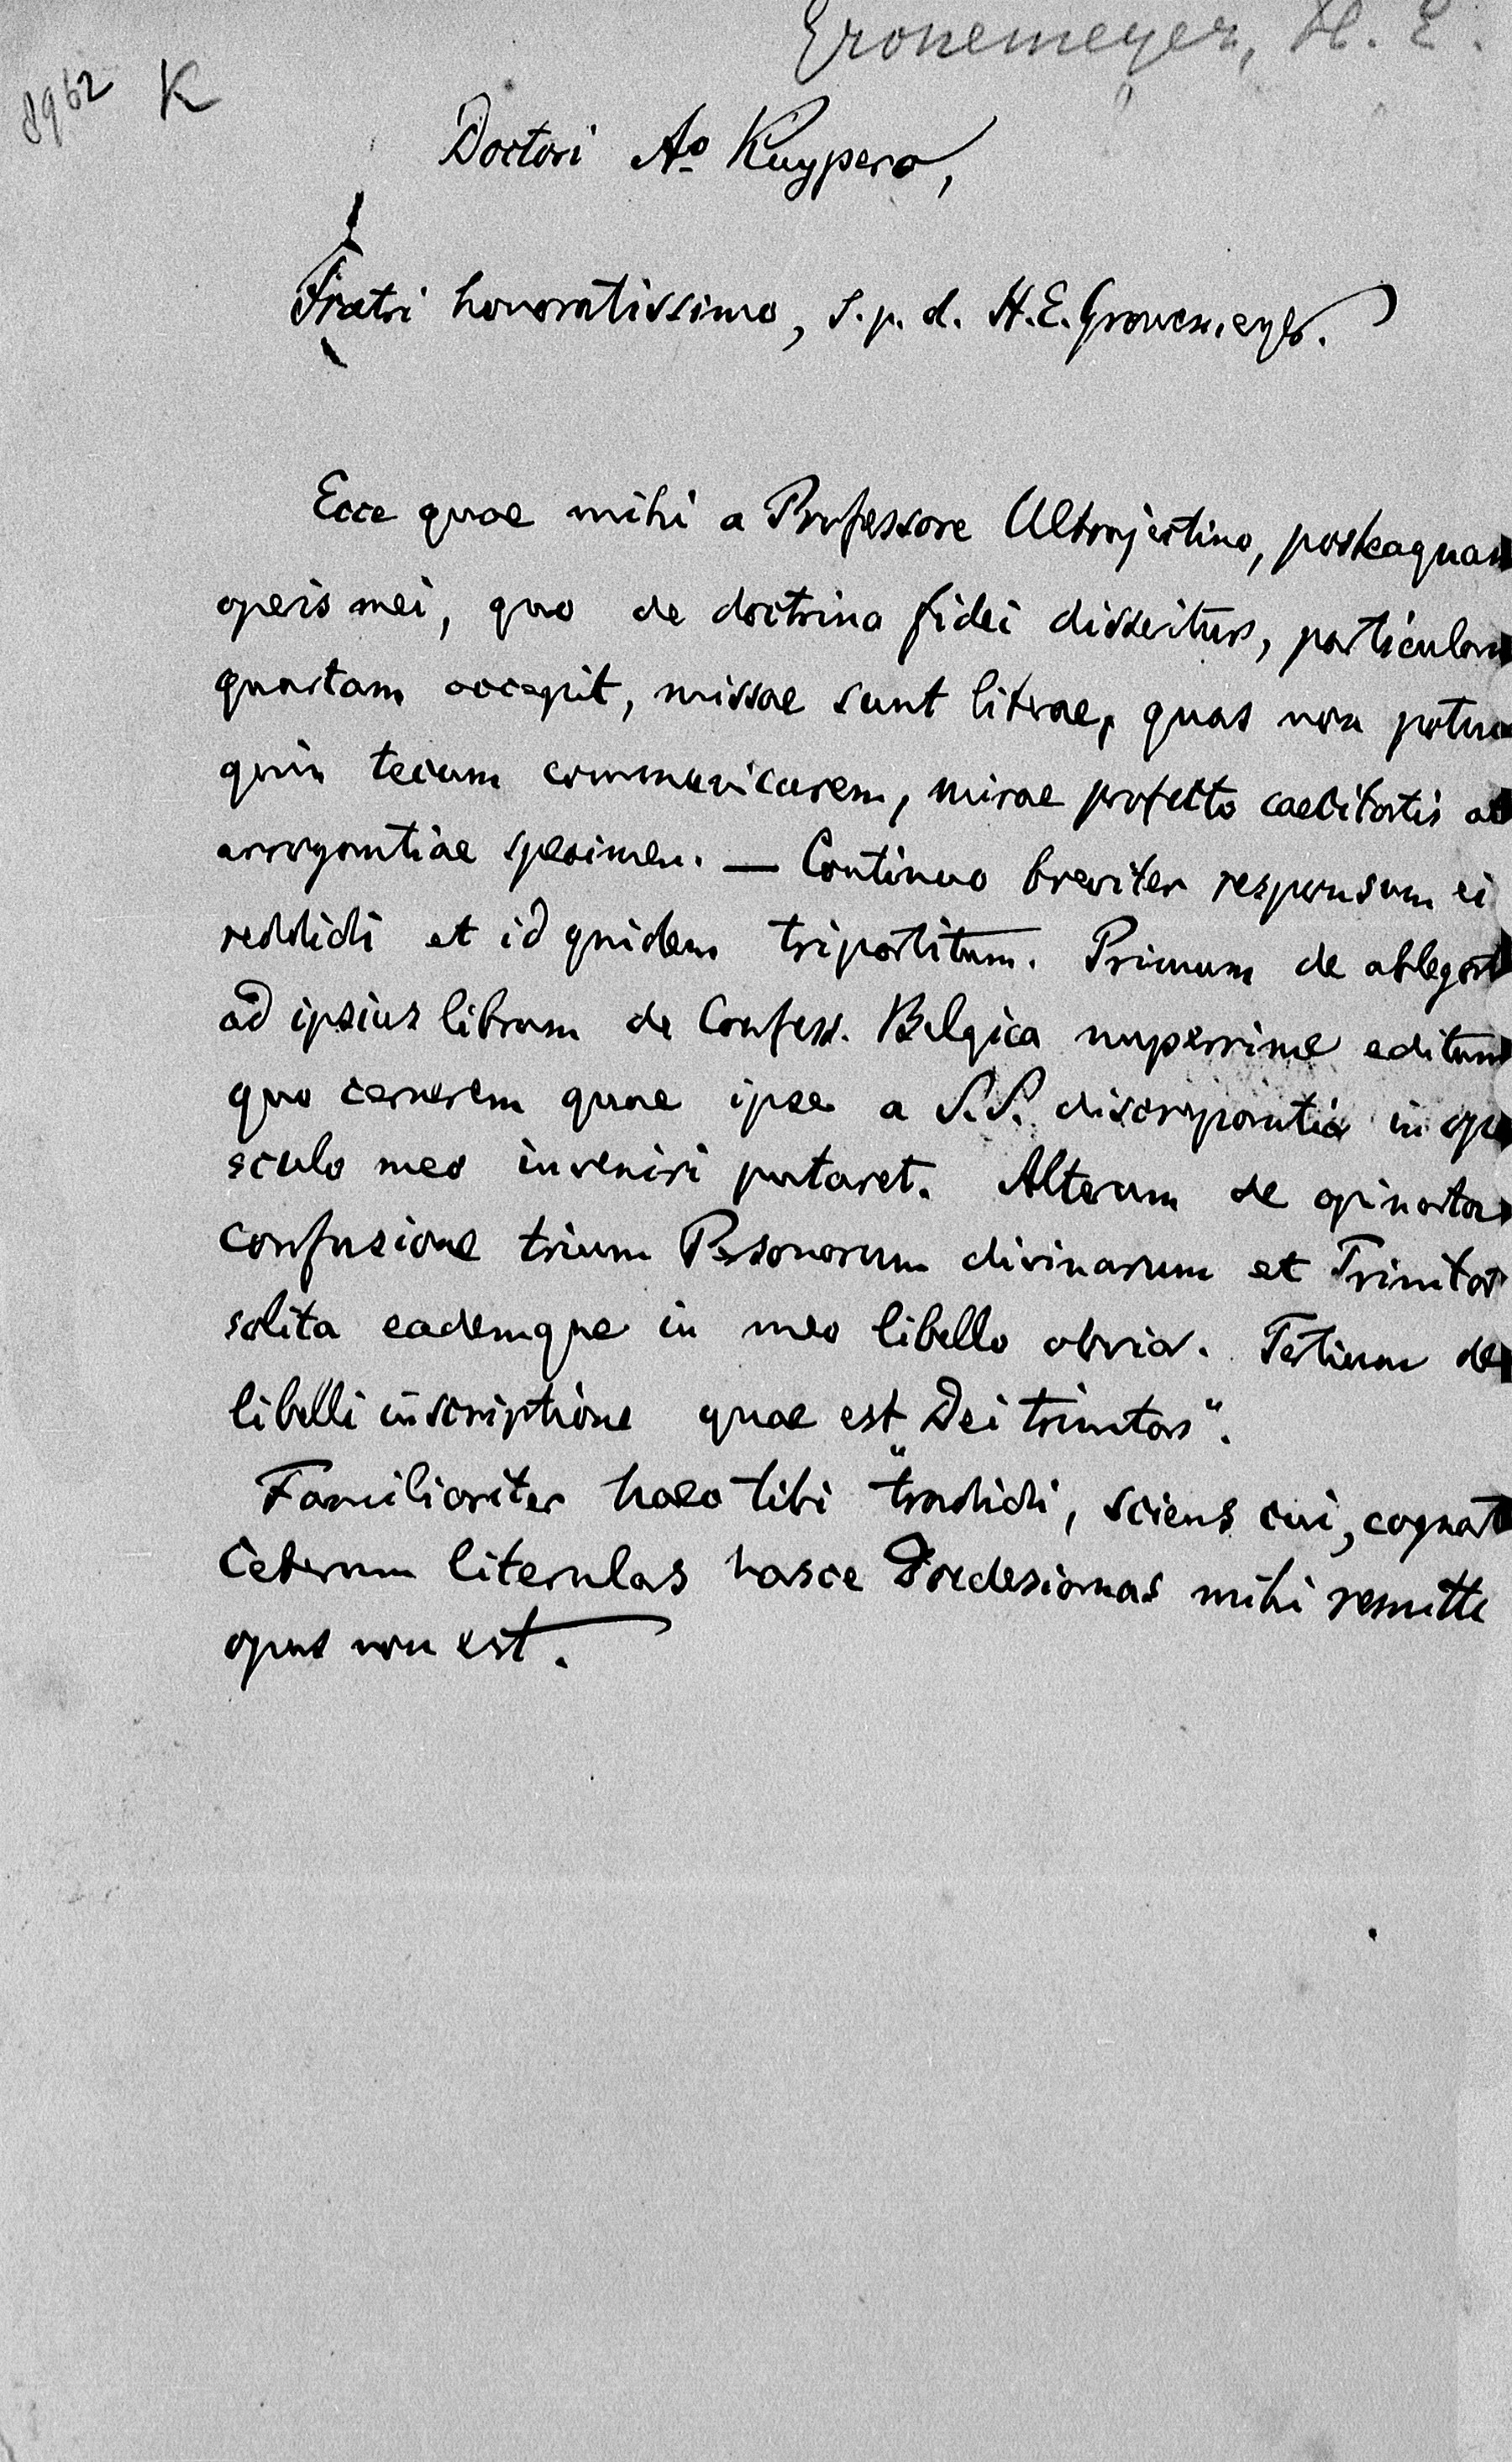 Gronemeyer, H. E.
8962 K
Doctori Ao Kuypero,
Fratri honoratissimo, s. p. d. H. E. Gronemeyer.
Ecce quae mihi a Professore Ultrajectino, posteaquam
operis mei, quo de doctrina fidei disseritur, particulam
quartam accepit, missae sunt literae, quas non potui
quin tecum communicarem, mirae profecto caecitatis at
arrogantiae specimen. — Continuo breviter responsum ei
reddidi et id quidem tripartitum. Primum de ablegat
ad ipsius librum de Confess. Belgica nuperrime editum
quo cernerem quae ipse a S.S. discrepantia in opu
sculo meo inveniri putaret. Alterum de opinata
confusione trium Personarum divinarum et Trinitat
solita eademque in meo libello obvia. Tertium de
libelli inscriptione quae est „Dei trinitas“.
Familiariter haec tibi tradidi, sciens cui, cognat
Ceterum literulas hasce mihi remitte
opus non est.